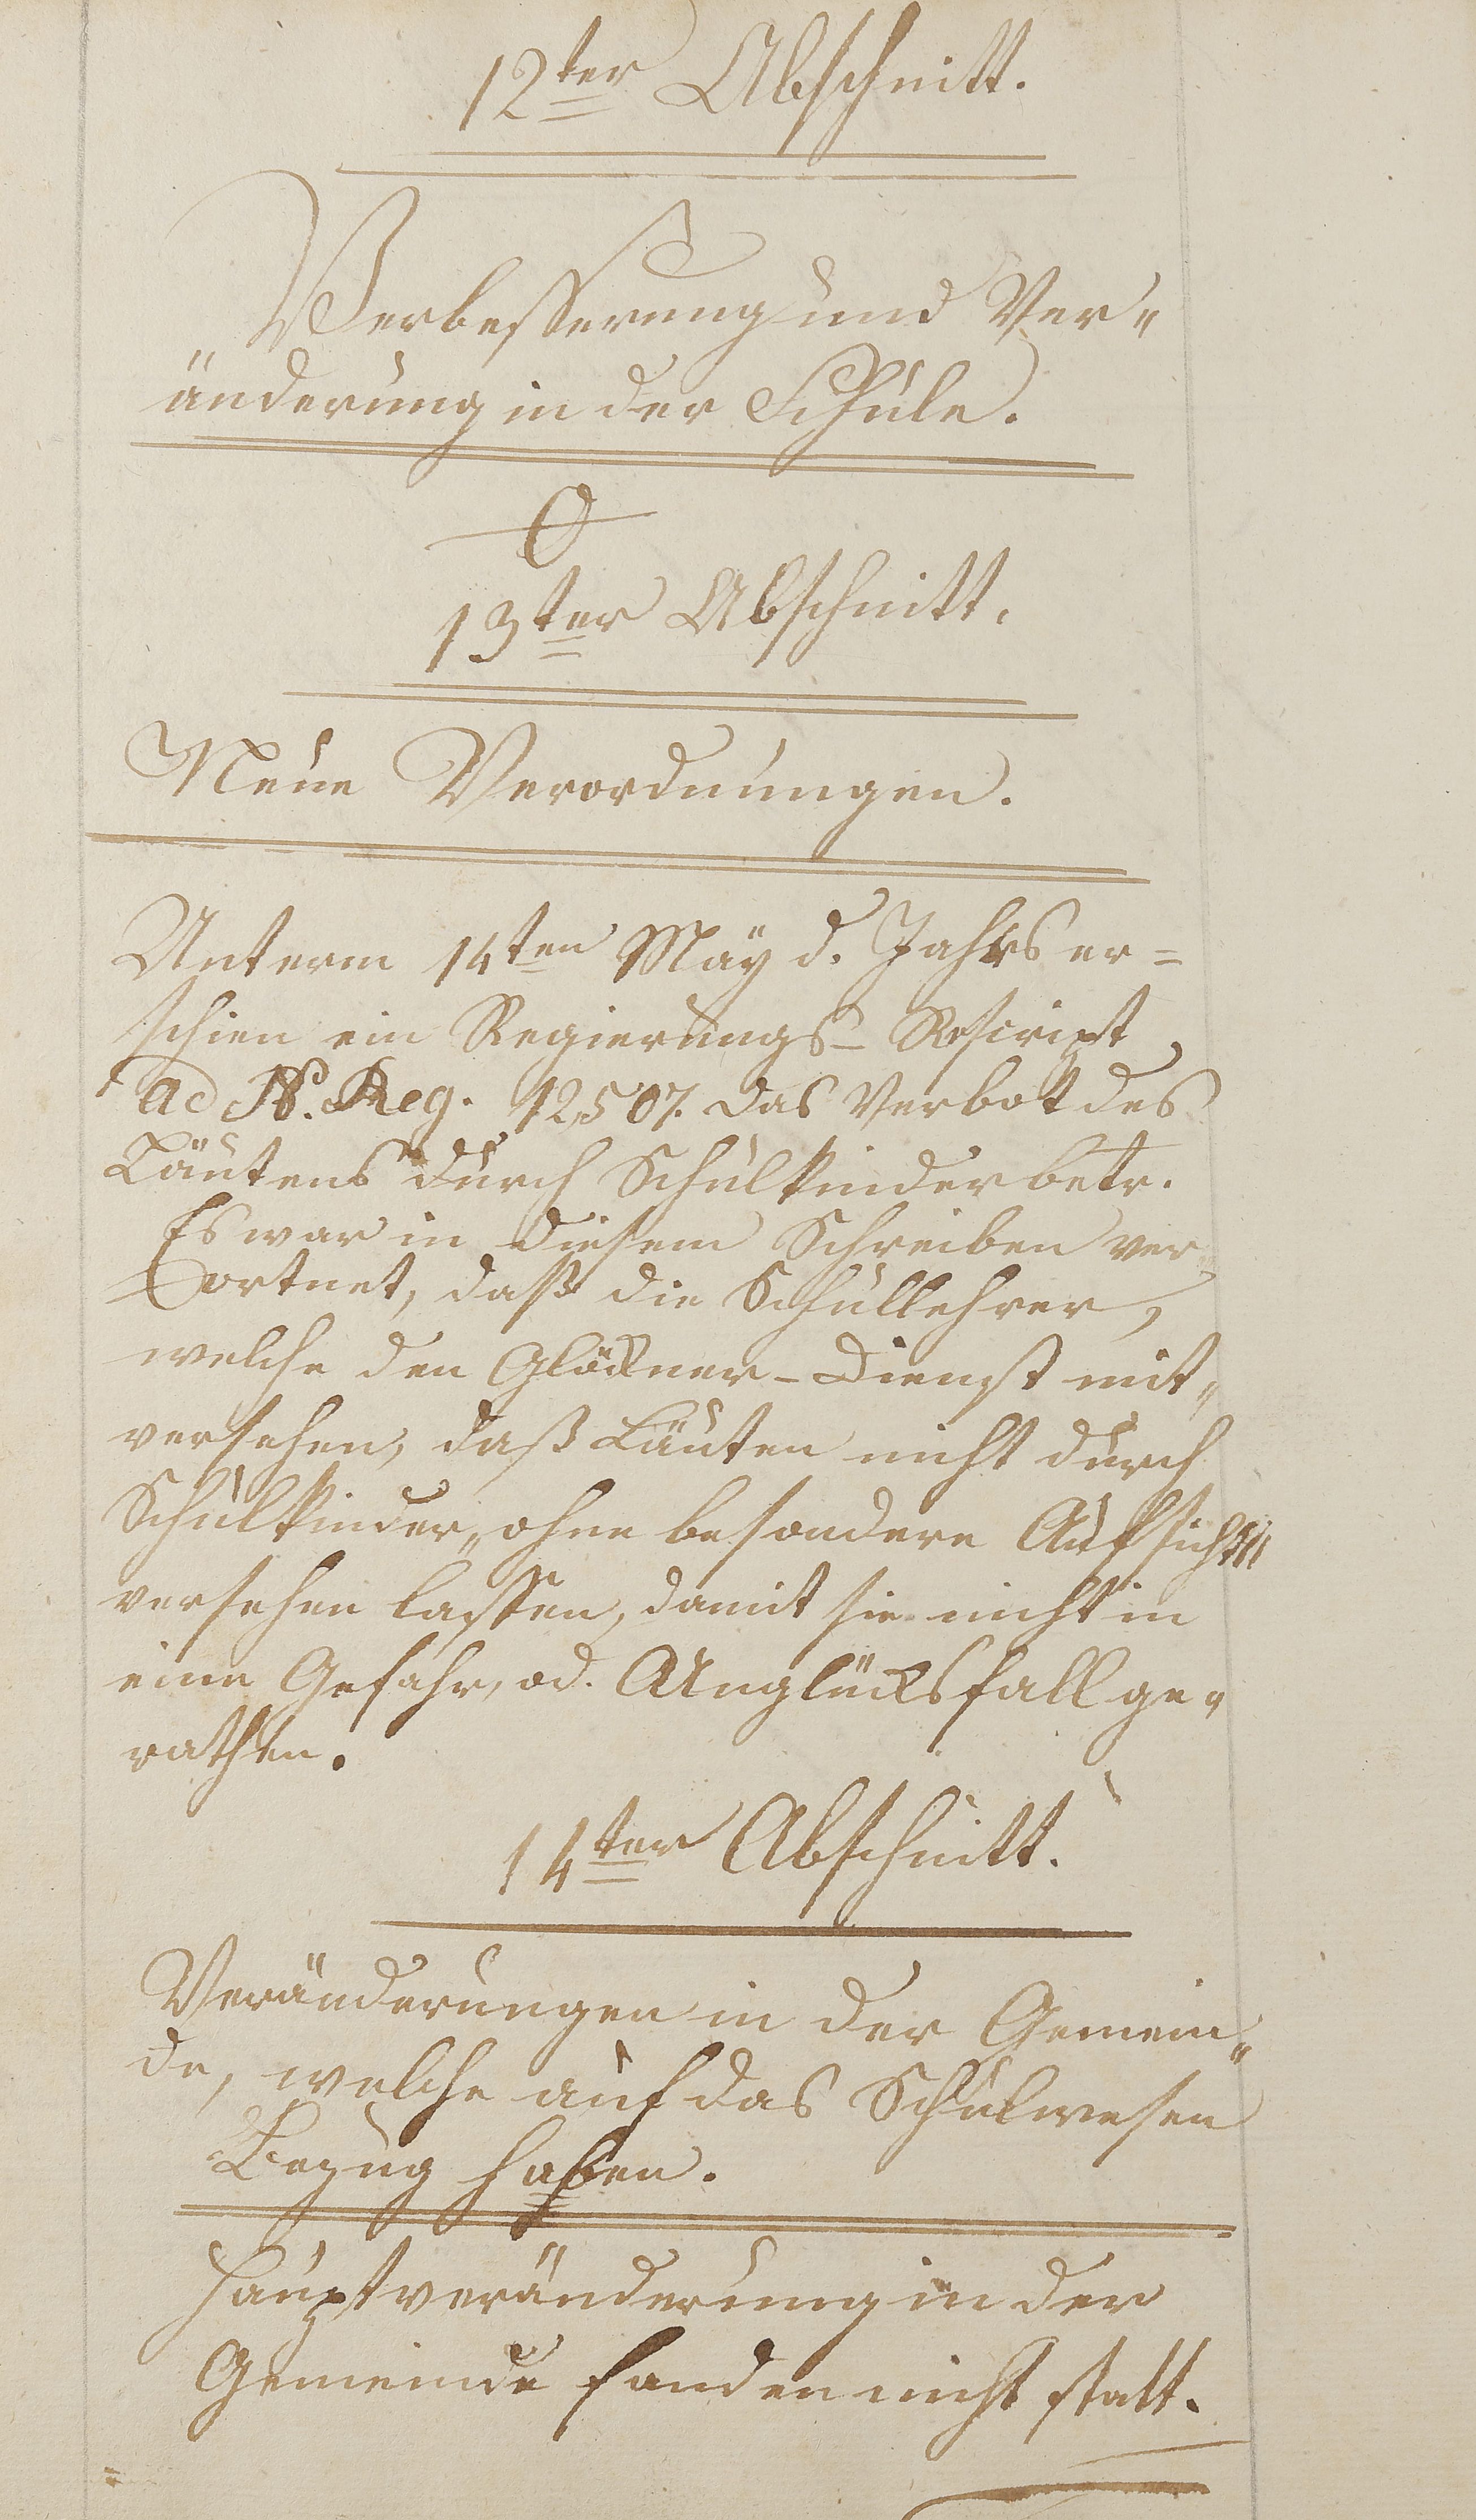 12ter Abschnitt.
Verbesserung und Ver„
änderung in der Schule.
0
13ter Abschnitt.
Neue Verordnungen.
Unterm 14ten Mäy d. Jahrs er=
schien ein Regierungs-Rescript
ad N. Reg. 12,507. das Verbot des
Läutens durch Schulkinder betr.
Es war in diesem Schreiben ver„
ortnet, daß die Schullehrer,
welche den Glöckner-Dienst mit„
versehen, daß Läuten nicht durch
Schulkinder „ohne besondere Aufsicht"
versehen lassen, damit sie nicht in
eine Gefahr, od. Unglücksfall ge„
rathen.
14ter Abschnitt.
Veränderungen in der Gemein„
de, welche auf das Schulwesen
Bezug haben.
Hauptveränderung in der
Gemeinde fanden nicht statt.